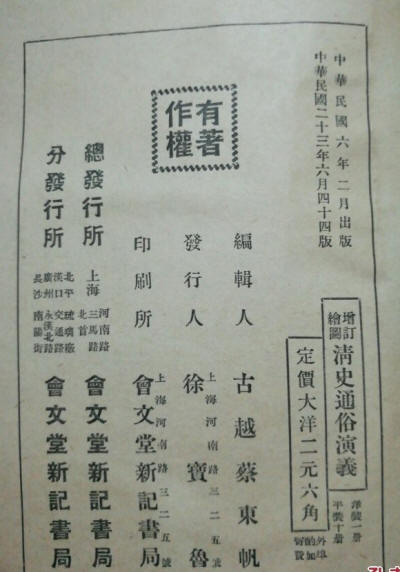 中華民國六年二月出版
中華民國二十三年六月四十四版
增訂繪圖
清史通俗演義
洋裝一册
平裝十册
定價大洋二元六角
外埠酌加寄費
有著作權
編輯人 古越蔡東帆
發行人 徐寶魯
上海河南路三二五號
印刷所 會文堂新記書局
上海河南路三二五號
總發行所 上海 河南路三馬路北首 會文堂新記書局
分發行所 北平 琉璃廠 漢口 交通路 廣州 永漢北路 長沙 南陽街 會文堂新記書局